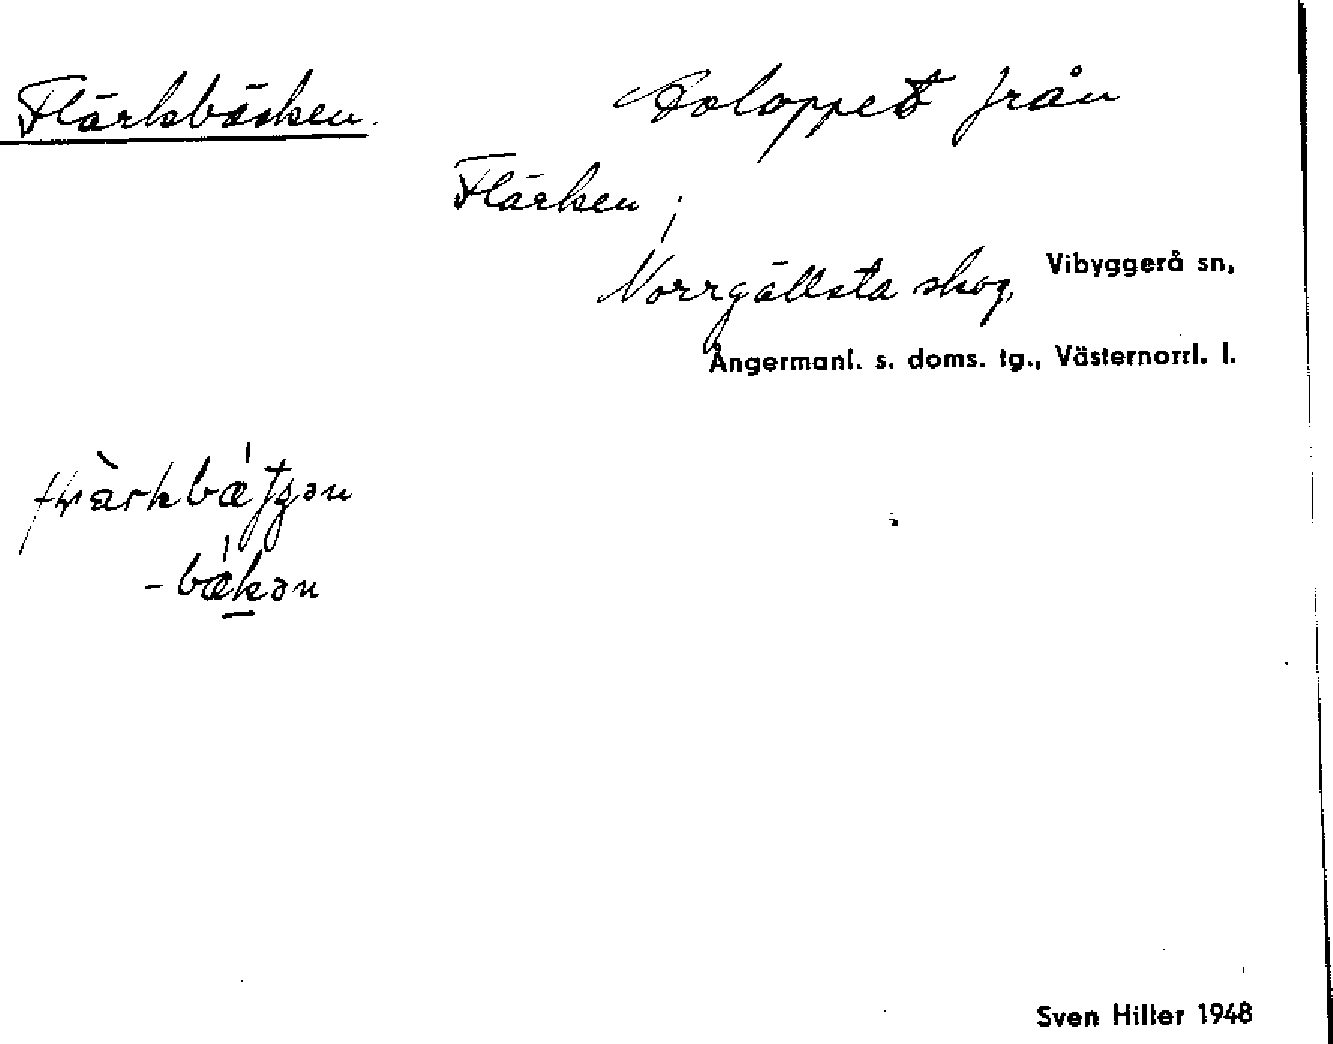 Flärkbäcken.
Avloppet från
Flärken,
Norrgällsta skog, Vibyggerå sn,
Ångermanl. s. doms. tg., Västernorrl. l.
-bæ̀kən
Sven Hiller 1948